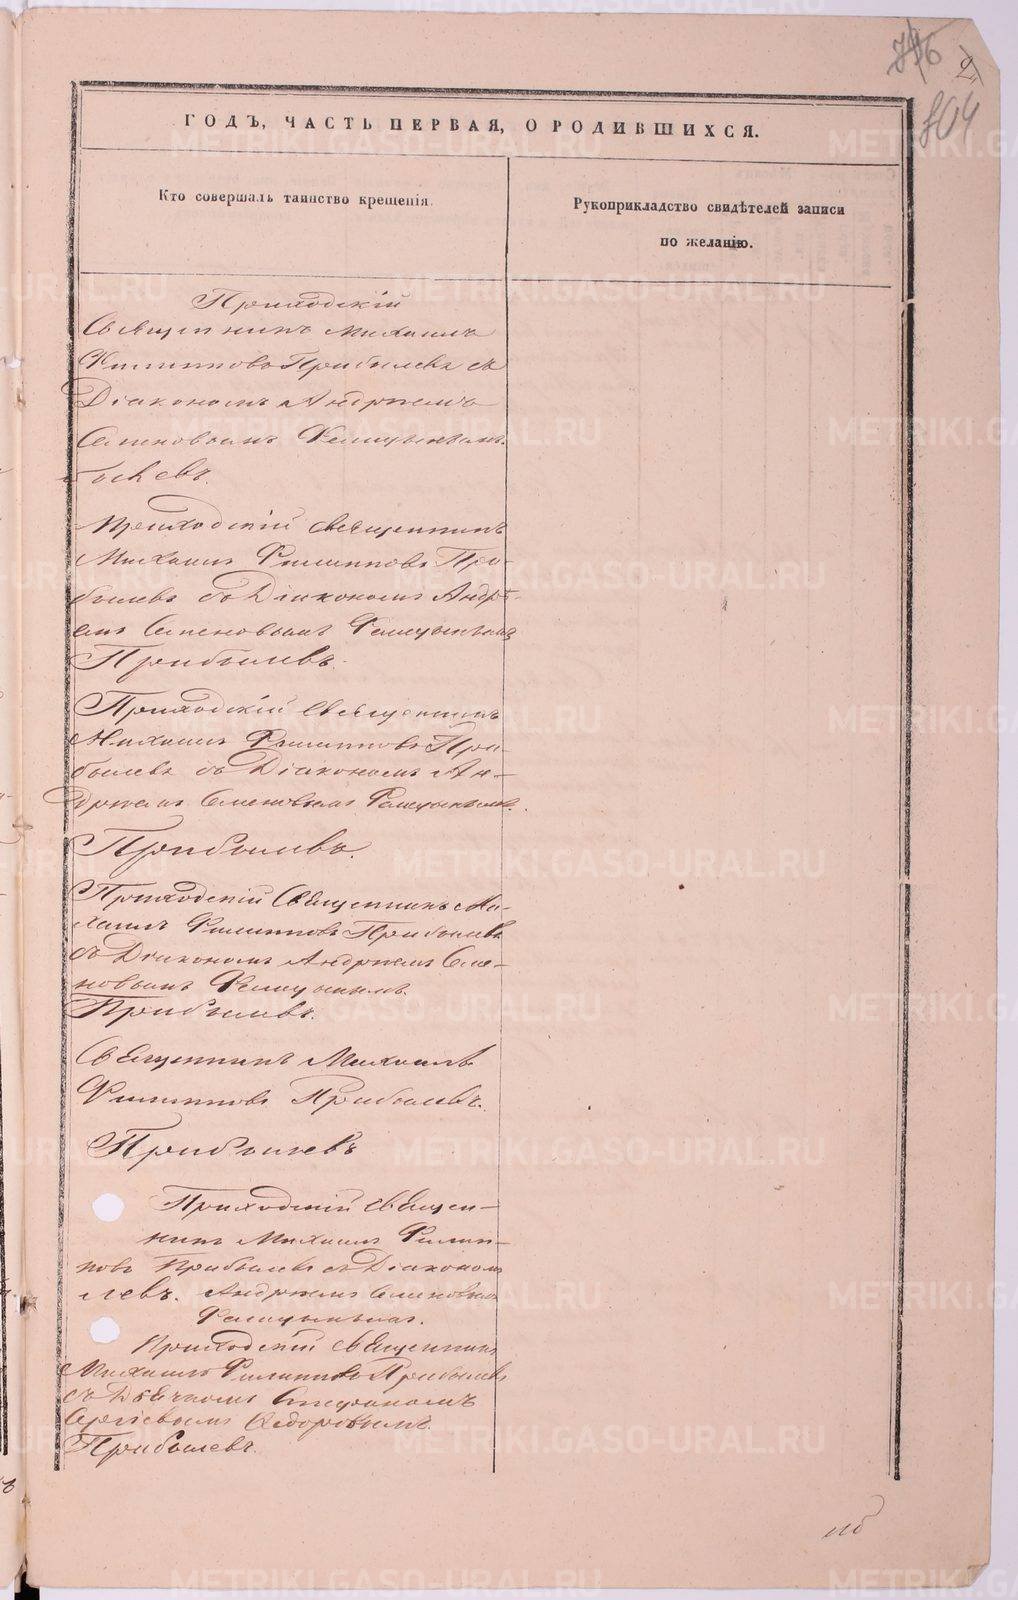 2
804
ГОДЪ, ЧАСТЬ ПЕРВАЯ, О РОДИВШИХСЯ.
Кто совершалъ таинство крещенія.
Рукоприкладство свидѣтелей записи
по желанію.
Приходскій
Священникъ Михаилъ
Филипповъ Прибылевъ съ
Діакономъ Андреемъ
Семеновымъ
Приходскій священникъ
Михаилъ Филипповъ При-
былевъ съ Діакономъ Андре-
емъ Семеновымъ
Прибылевъ.
Приходскій Священникъ
Михаилъ Филипповъ При-
былевъ съ Діакономъ Ан-
дреемъ Семеновымъ
Прибылевъ.
Приходскій Священникъ Ми-
хаилъ Филипповъ Прибылевъ
съ Діакономъ Андреемъ Семе-
новымъ
Прибылевъ.
Священникъ Михаилъ
Филипповъ Прибылевъ.
Прибылевъ
Приходскій Священ-
никъ Михаилъ Филип-
повъ Прибылевъ съ Діакономъ
левъ. Андреемъ Семеновымъ
Приходскій Священникъ
Михаилъ Филипповъ Прибылевъ
съ Дьячкомъ Стефаномъ
Сергіевымъ Ѳедоровымъ.
Прибылевъ.
METRIKI.GASO-URAL.RU